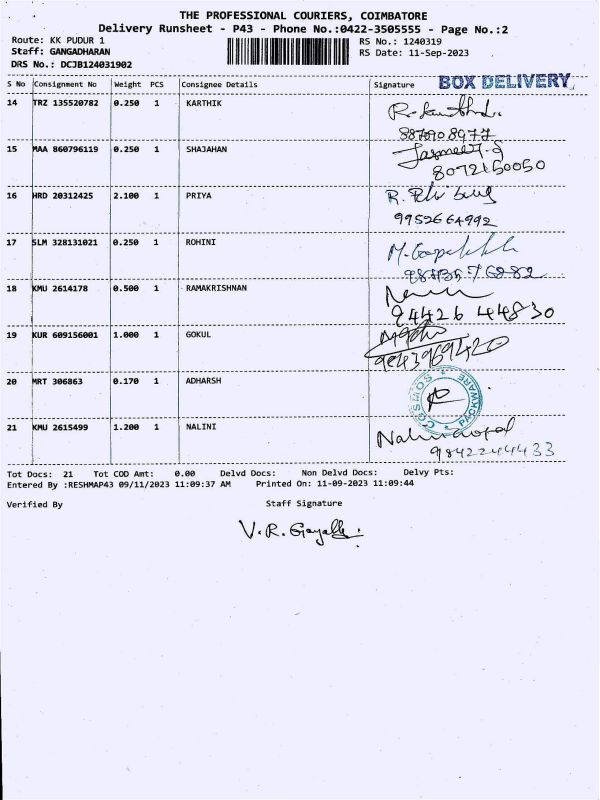 THE PROFESSIONAL COURIERS, COIMBATORE
Delivery Runsheet - P43 - Phone No.:0422-3505555 - Page No.:2
Route: KK PUDUR 1 RS No.: 1240319
Staff: GANGADHARAN RS Date: 11-Sep-2023
DRS No.: DCJB124031902
BOX DELIVERY
S No Consignment No Weight PCS Consignee Details Signature
14 TRZ 135520782 0.250 1 KARTHIK
8870908977
15 MAA 860796119 0.250 1 SHAJAHAN
8072150050
16 HRD 20312425 2.100 1 PRIYA
9952664992
17 SLM 328131021 0.250 1 ROHINI
18 KMU 2614178 0.500 1 RAMAKRISHNAN
94426 44830
19 KUR 609156001 1.000 1 GOKUL
9043969420
20 MRT 306863 0.170 1 ADHARSH
COSMOS PACKWARE
21 KMU 2615499 1.200 1 NALINI
9842244433
Tot Docs: 21 Tot COD Amt: 0.00 Delvd Docs: Non Delvd Docs: Delvy Pts:
Entered By :RESHMAP43 09/11/2023 11:09:37 AM Printed On: 11-09-2023 11:09:44
Verified By Staff Signature